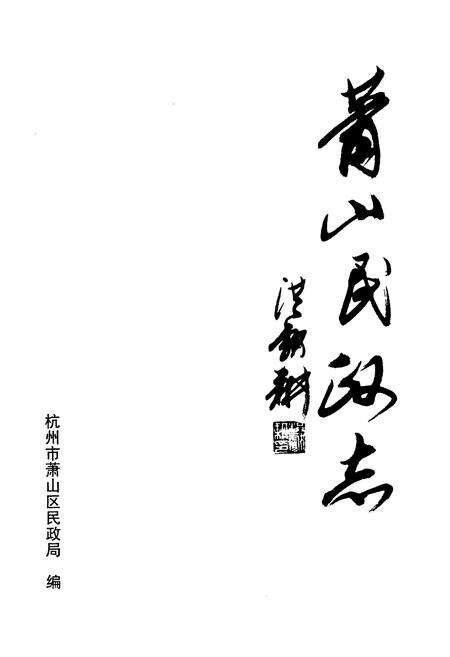 萧山民政志
洪
杭州市萧山区民政局 编